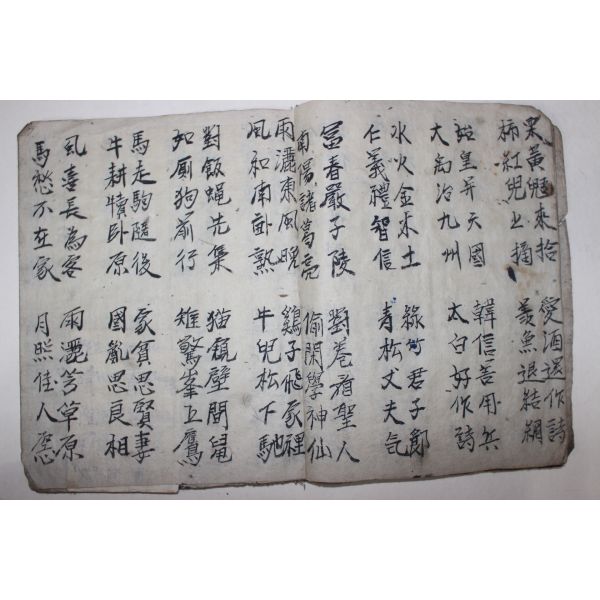 栗黃鼯來拾
柿紅兒上摘
愛酒還作詩
羨魚退結網
始皇并六國
大禹治九州
韓信善用兵
太白好作詩
水火金木土
仁義禮智信
綠竹君子節
青松丈夫气
富春嚴子陵
南陽諸葛亮
對卷看聖人
偷閑學神仙
雨灑東風晚
風和南畝熟
鷄子飛家裡
牛兒松下馳
對飯蠅先集
如厠狗前行
猫窺壁間鼠
雉驚峯上鷹
馬走駒隨後
牛耕犢臥原
家貧思賢妻
國亂思良相
風喜長為客
馬愁不在家
雨灑芳草原
月照佳人